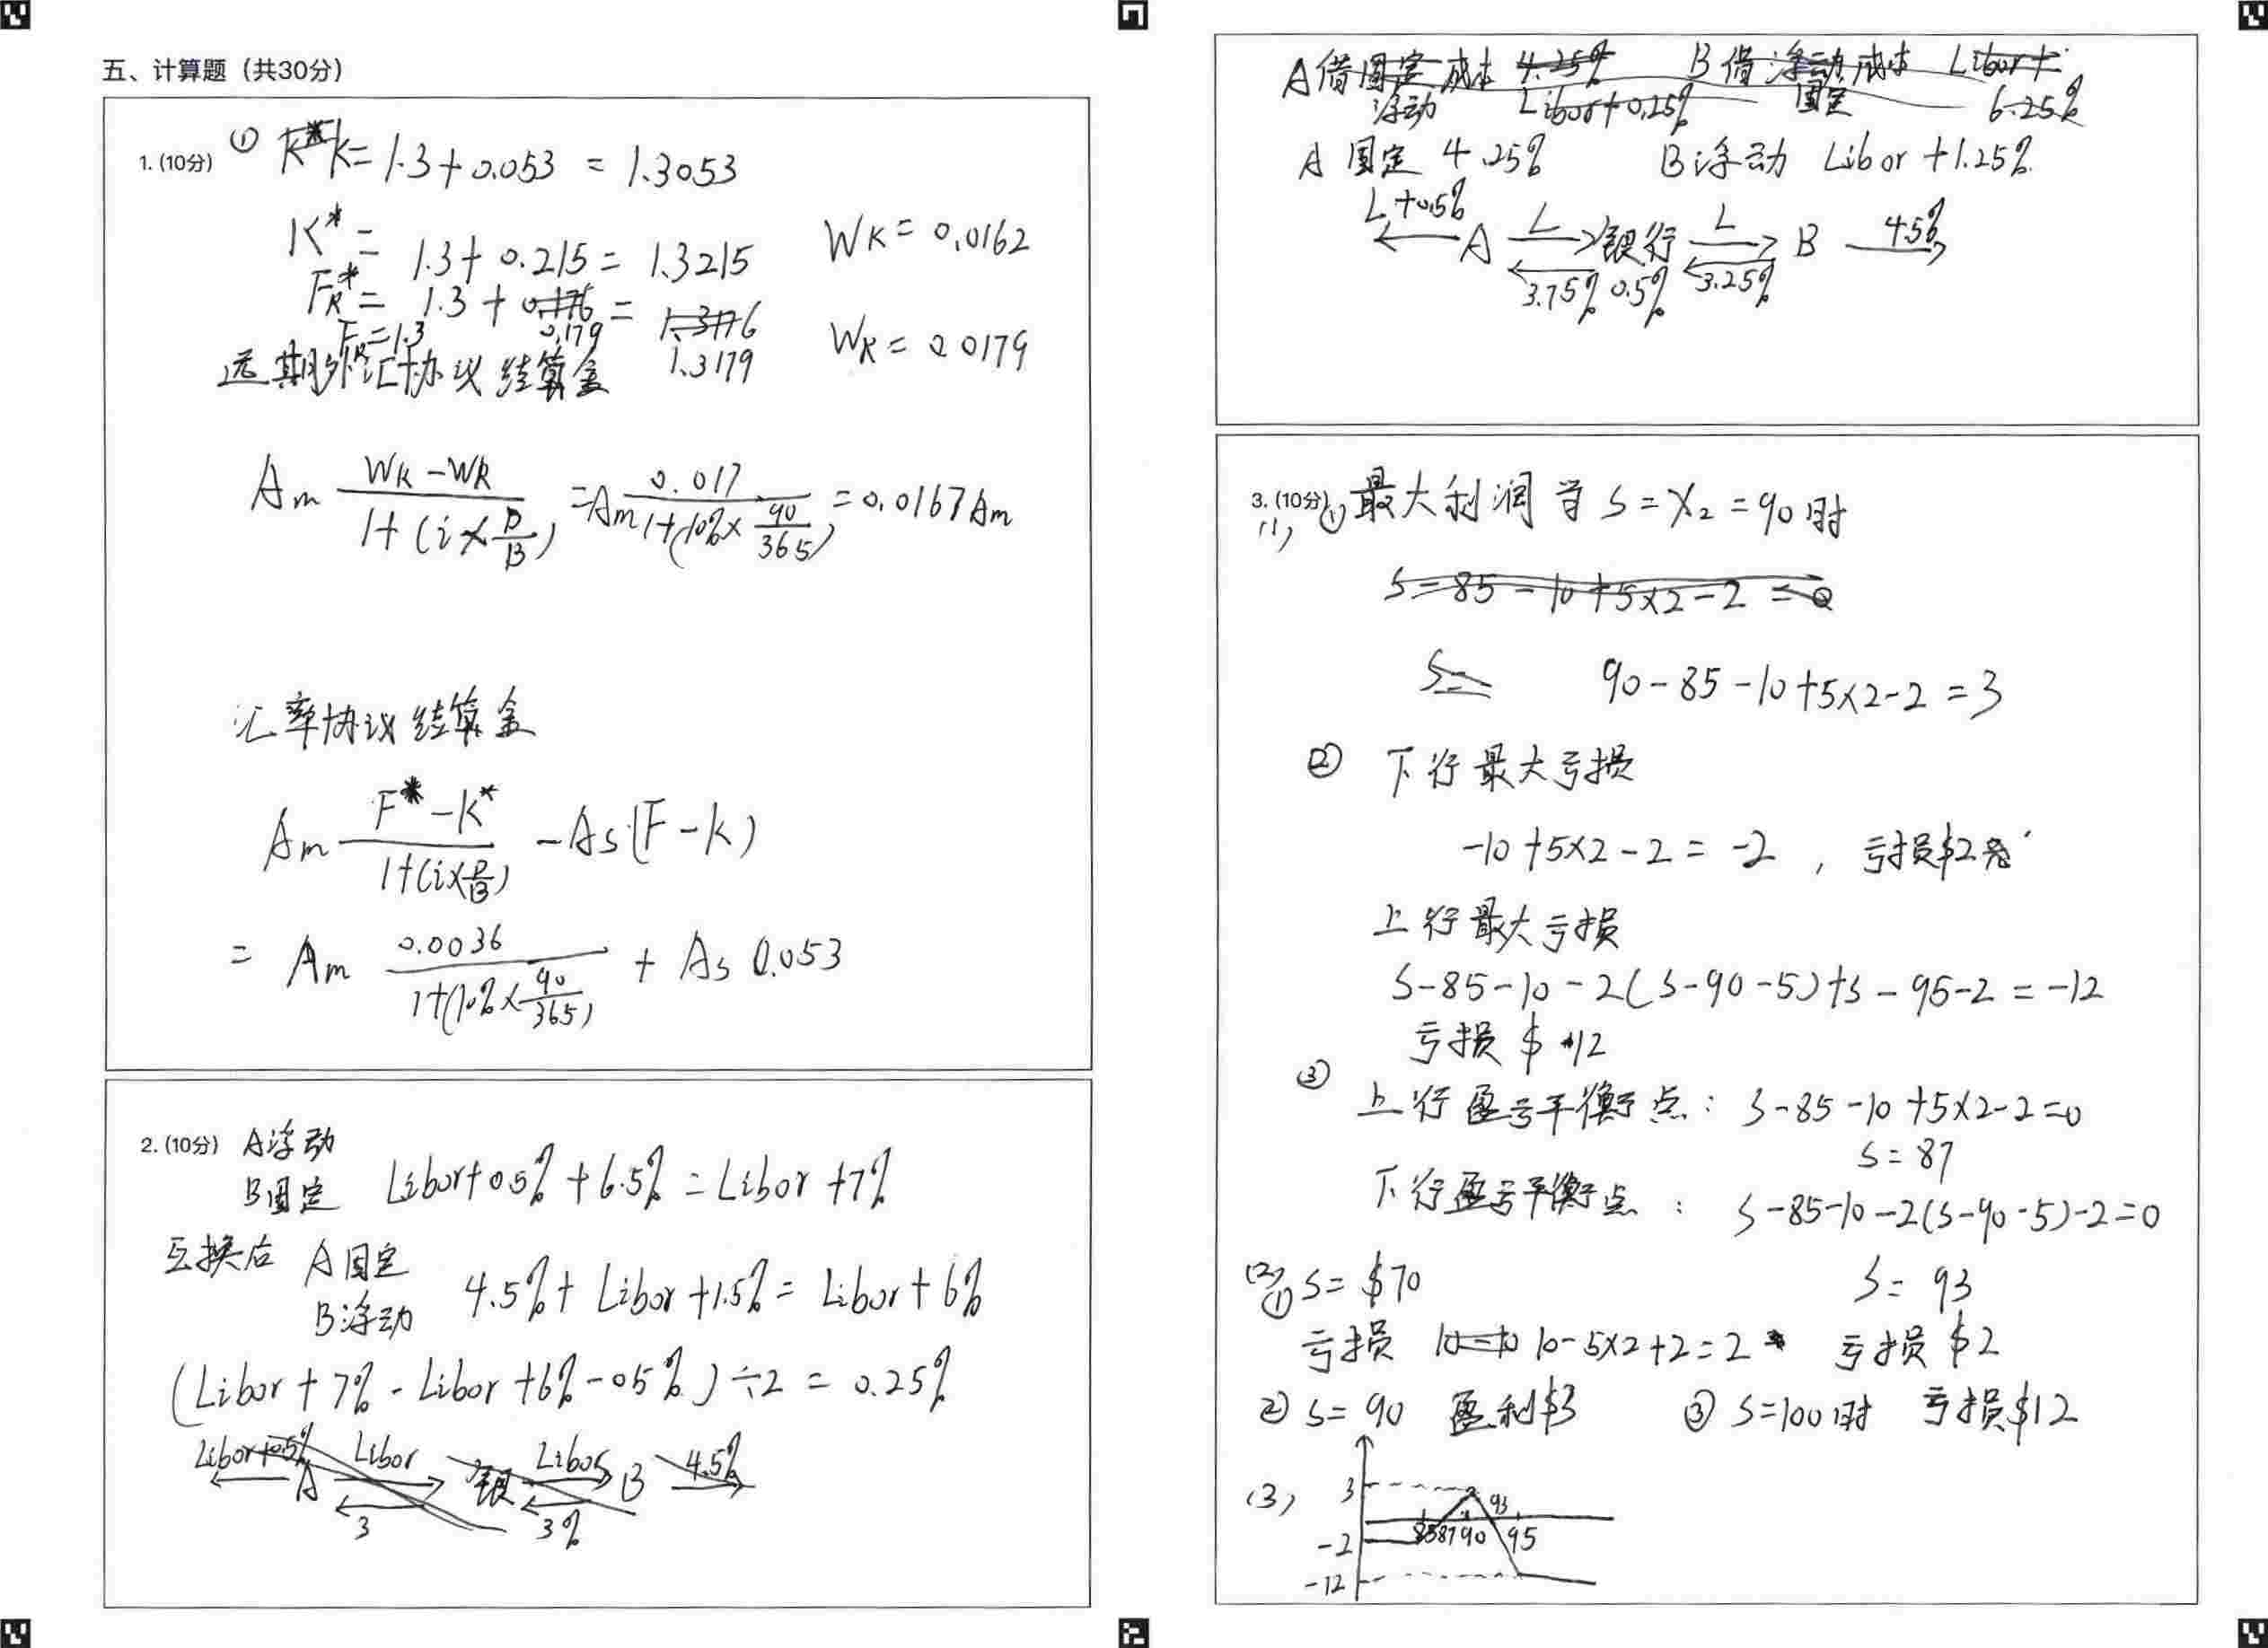 五、计算题（共30分）
1. (10分) ① K=1.3+0.053 = 1.3053
K* = 1.3+0.215 = 1.3215 WK = 0.0162
FR* = 1.3 + 0.179 = 1.3179 WR = 0.0179
FR=1.3
远期外汇协议结算金
Am (WK - WR)/(1+(i×D/B)) = Am 0.017/(1+(10%×90/365)) = 0.0167Am
汇率协议结算金
Am (F* - K*)/(1+(i×D/B)) - As(F-K)
= Am 0.0036/(1+(10%×90/365)) + As 0.053
2. (10分) A浮动
B固定 Libor+0.5%+6.5%=Libor+7%
互换后 A固定
B浮动 4.5%+Libor+1.5%=Libor+6%
(Libor+7%-Libor+6%-0.5%)÷2 = 0.25%
Libor+0.5% Libor Libor 4.5%
A 银 B
3 3%
A借固定成本 4.25% B借浮动成本 Libor+
浮动 Libor+0.25% 固定 6.25%
A固定 4.25% B浮动 Libor+1.25%
L+0.5% L L 4.5%
A 银行 B
3.75% 0.5% 3.25%
3. (10分)
(1) ① 最大利润 当S=X₂=90时
S=85-10+5×2-2=0
S= 90-85-10+5×2-2=3
② 下行最大亏损
-10+5×2-2=-2，亏损$2
上行最大亏损
S-85-10-2(S-90-5)+S-95-2=-12
亏损$12
③ 上行盈亏平衡点：S-85-10+5×2-2=0
S=87
下行盈亏平衡点：S-85-10-2(S-90-5)-2=0
S=93
(2) ① S=$70
亏损 10-10 10-5×2+2=2 亏损$2
② S=90 盈利$3 ③ S=100时 亏损$12
(3)
3
93
85 87 90 95
-2
-12